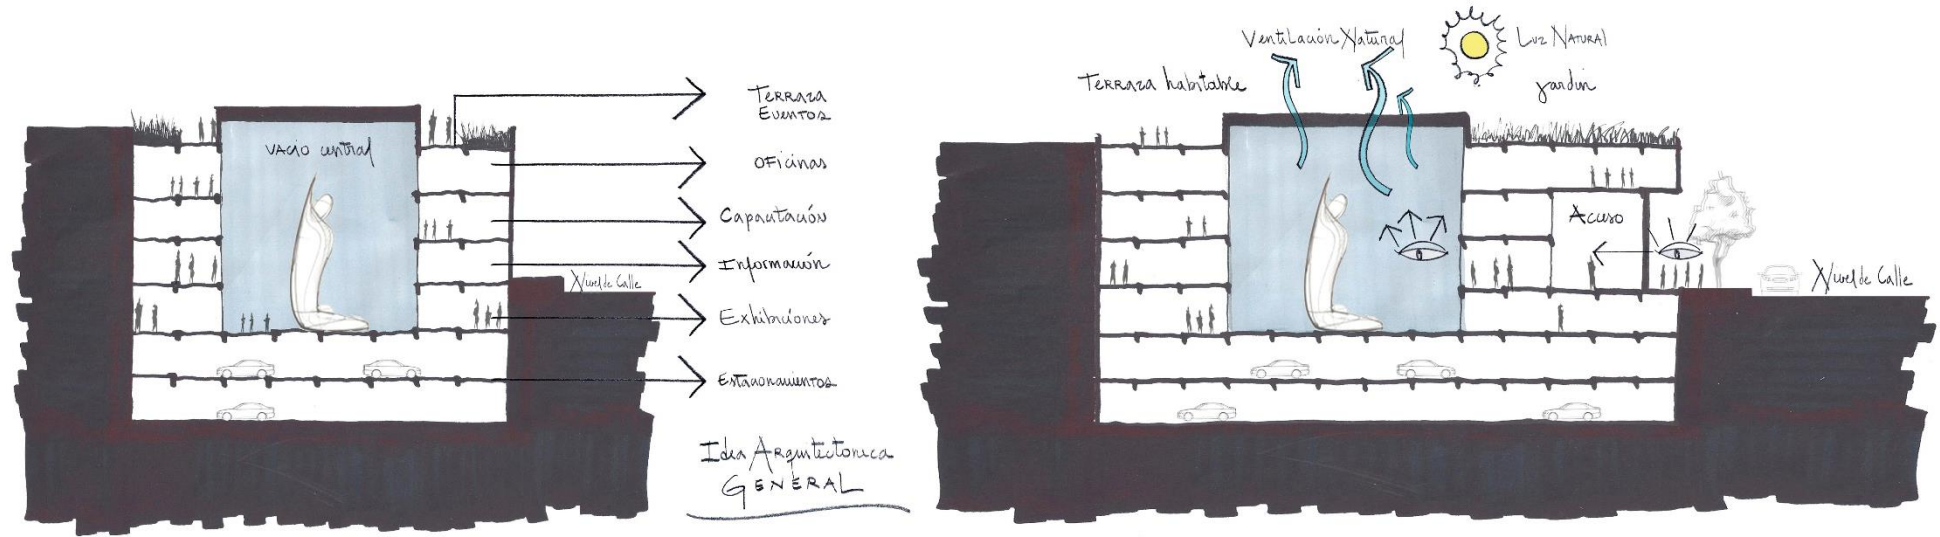 Vacio central
Terraza
Eventos
Oficinas
Capacitación
Información
Nivel de Calle
Exhibiciones
Estacionamientos
Idea Arquitectonica
General
Ventilación Natural
Luz Natural
Terraza habitable
jardin
Acceso
Nivel de Calle